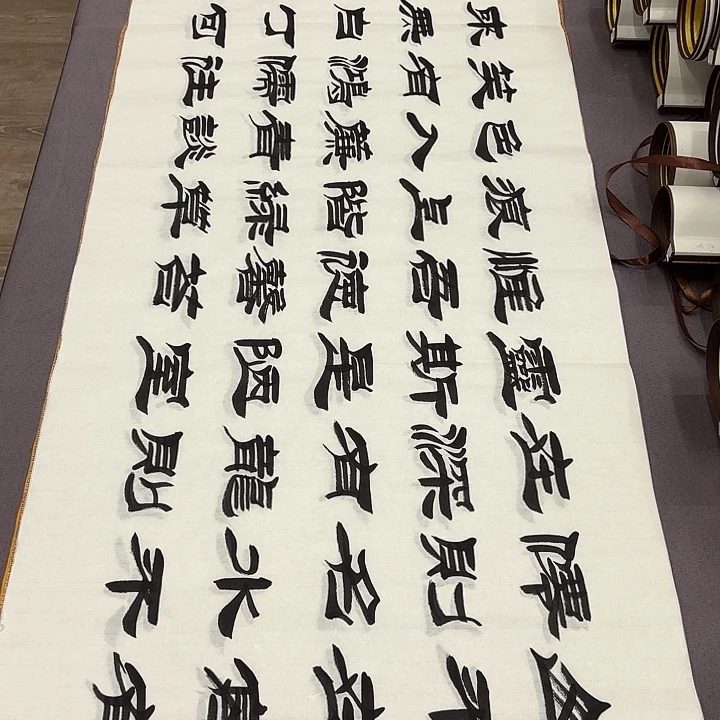 山不在高有
仙則名水不
在深有龍則
靈斯是陋室
惟吾德馨苔
痕上階綠草
色入簾青談
笑有鴻儒往
來無白丁可